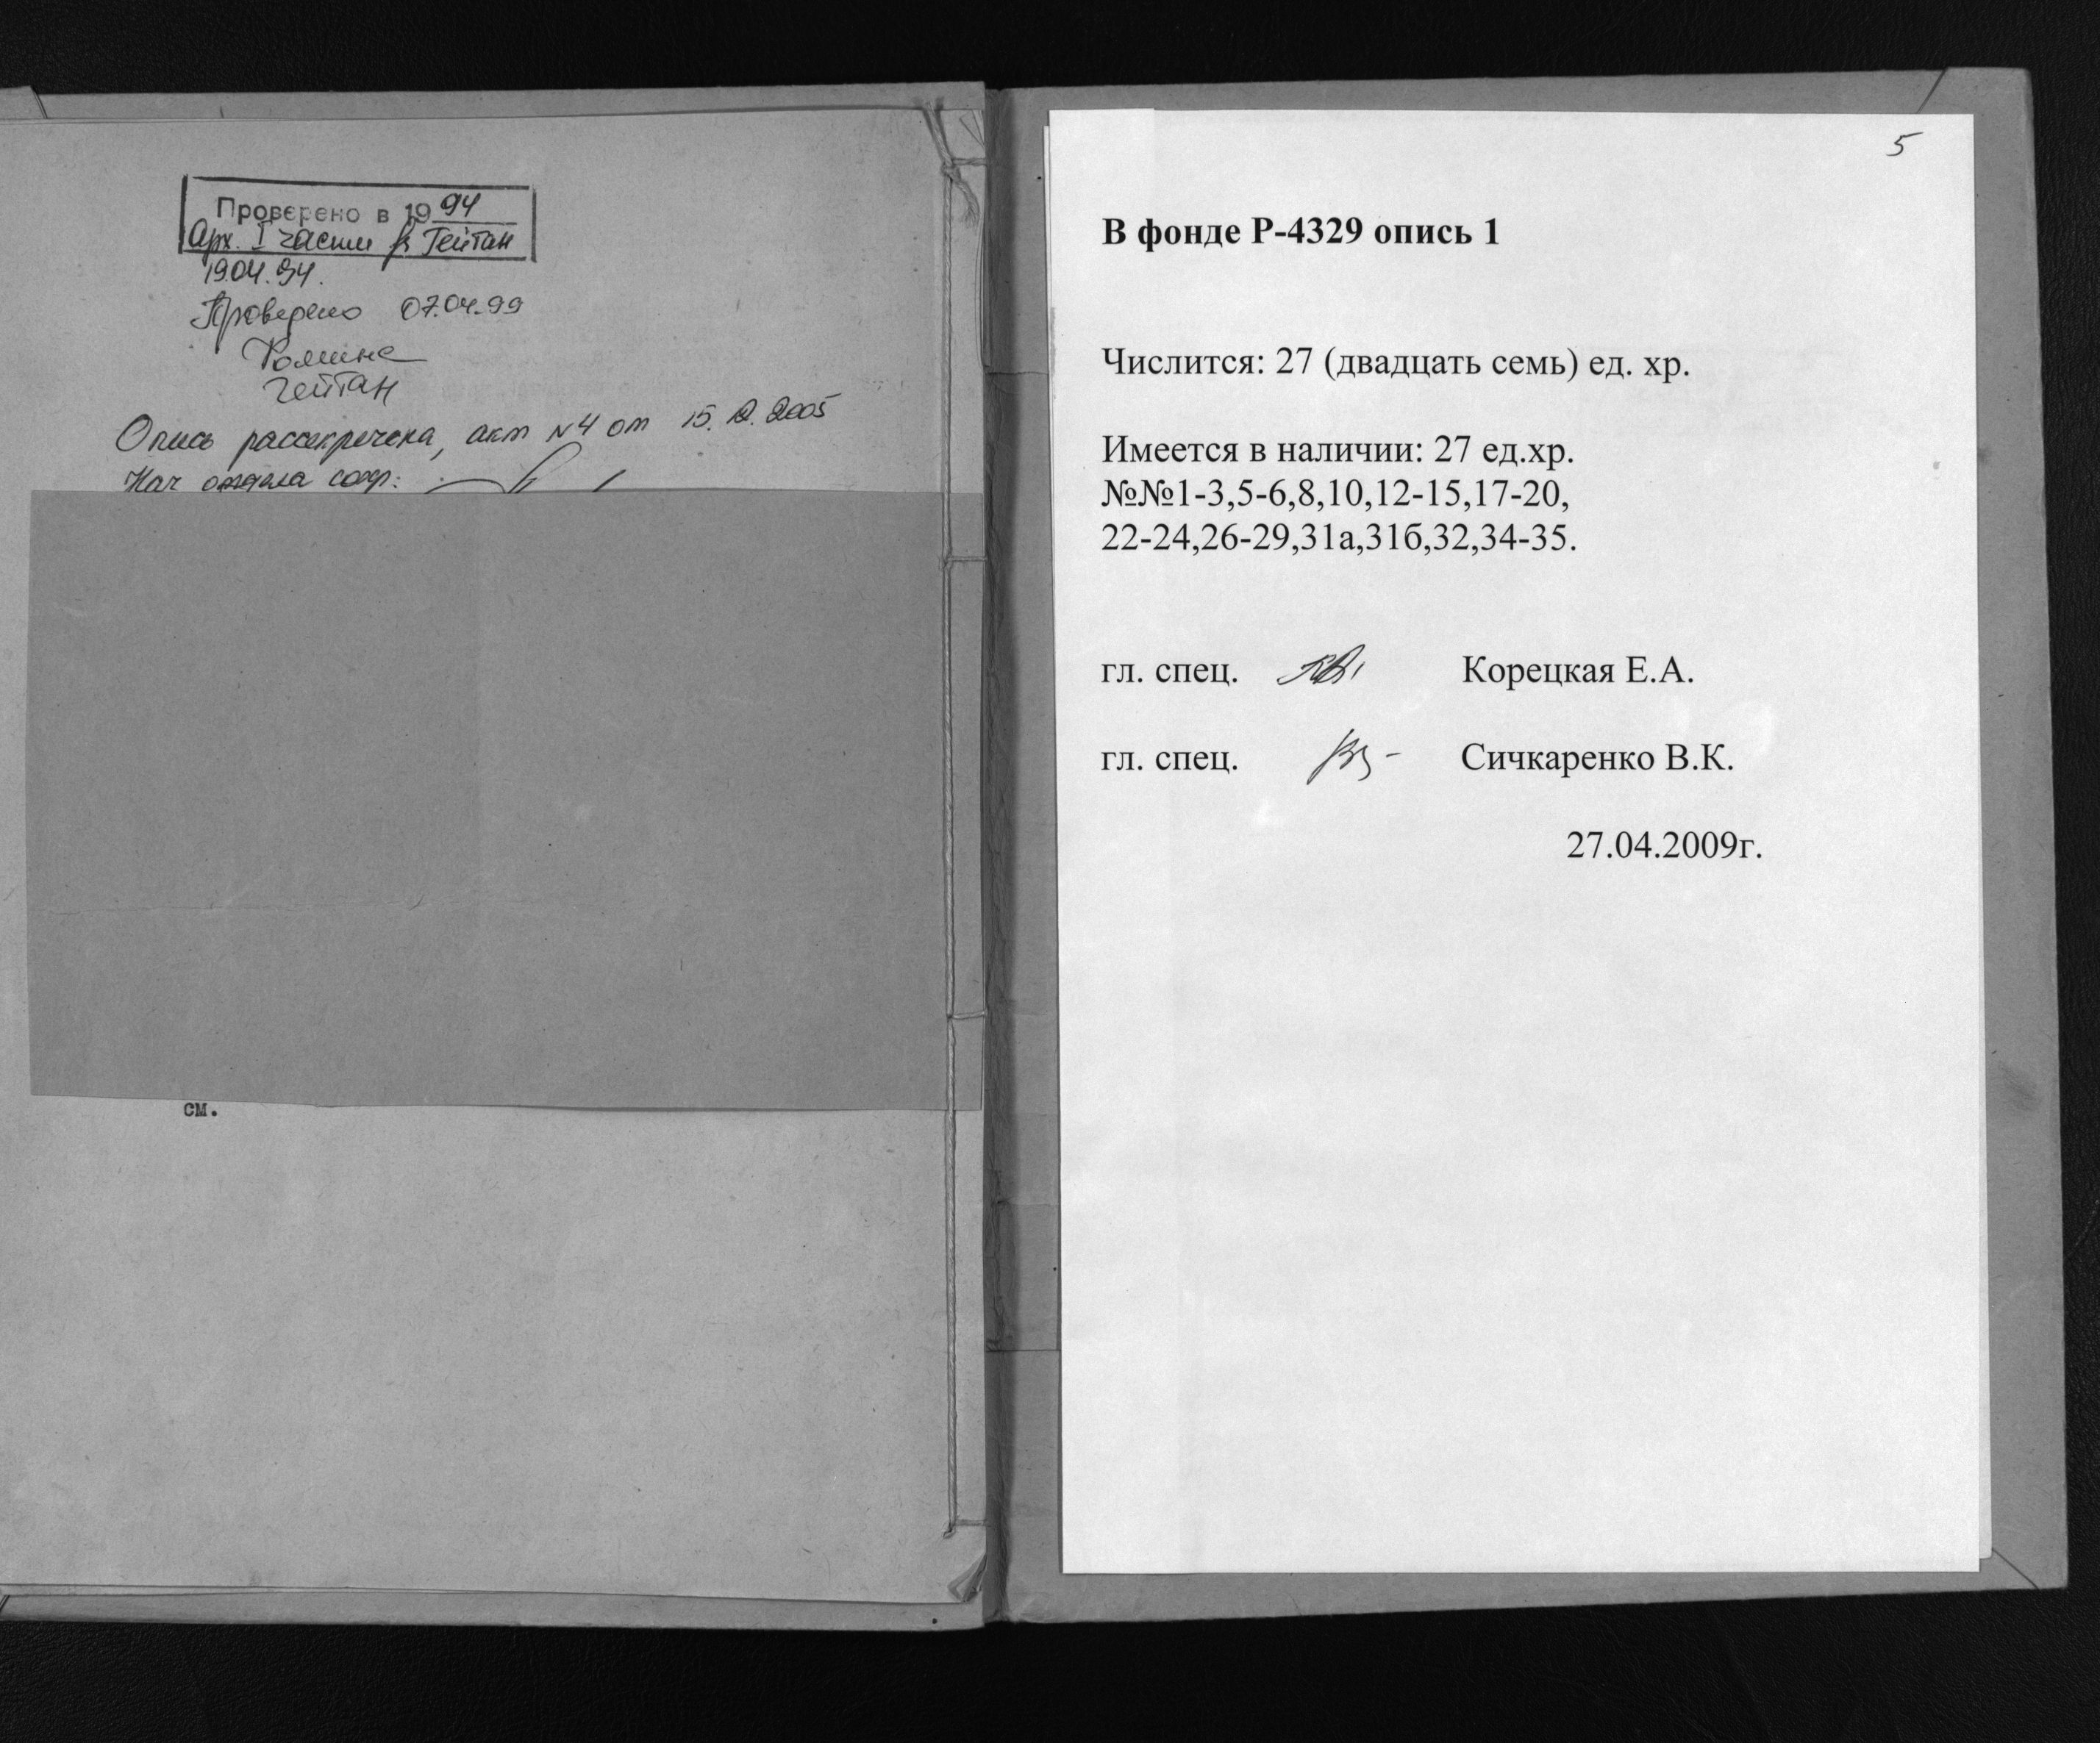 Проверено в 1994
Арх. I части Гейтан
19.04.94.
Проверено 07.04.99
Гейтан
Опись рассекречена, акт №4 от 15. 12. 2005
Нач отдела
см.
5
В фонде Р-4329 опись 1
Числится: 27 (двадцать семь) ед. хр.
Имеется в наличии: 27 ед.хр.
№№1-3,5-6,8,10,12-15,17-20,
22-24,26-29,31а,31б,32,34-35.
гл. спец. Корецкая Е.А.
гл. спец. Сичкаренко В.К.
27.04.2009г.